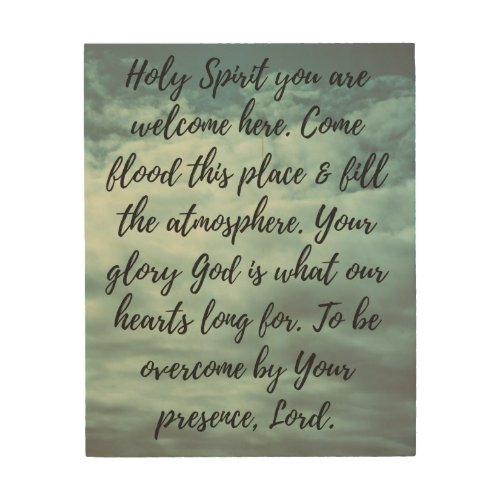 Holy Spirit you are
welcome here. Come
flood this place & fill
the atmosphere. Your
glory God is what our
hearts long for. To be
overcome by Your
presence, Lord.